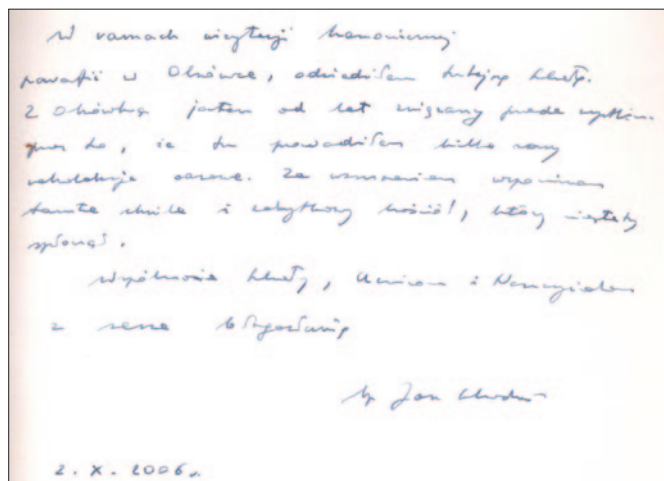 W ramach wizytacji kanonicznej
parafii w Olsówce, odwiedziłem tutejszą szkołę.
Z Olsówką jestem od lat związany przede wszystkim
przez to, że tu prowadziłem kilka razy
rekolekcje oazowe. Ze wzruszeniem wspominam
tamte chwile i zabytkowy kościół, który niestety
spłonął.
Wspólnocie szkoły, Uczniom i Nauczycielom
z serca błogosławię
bp Jan
2. X. 2006 r.